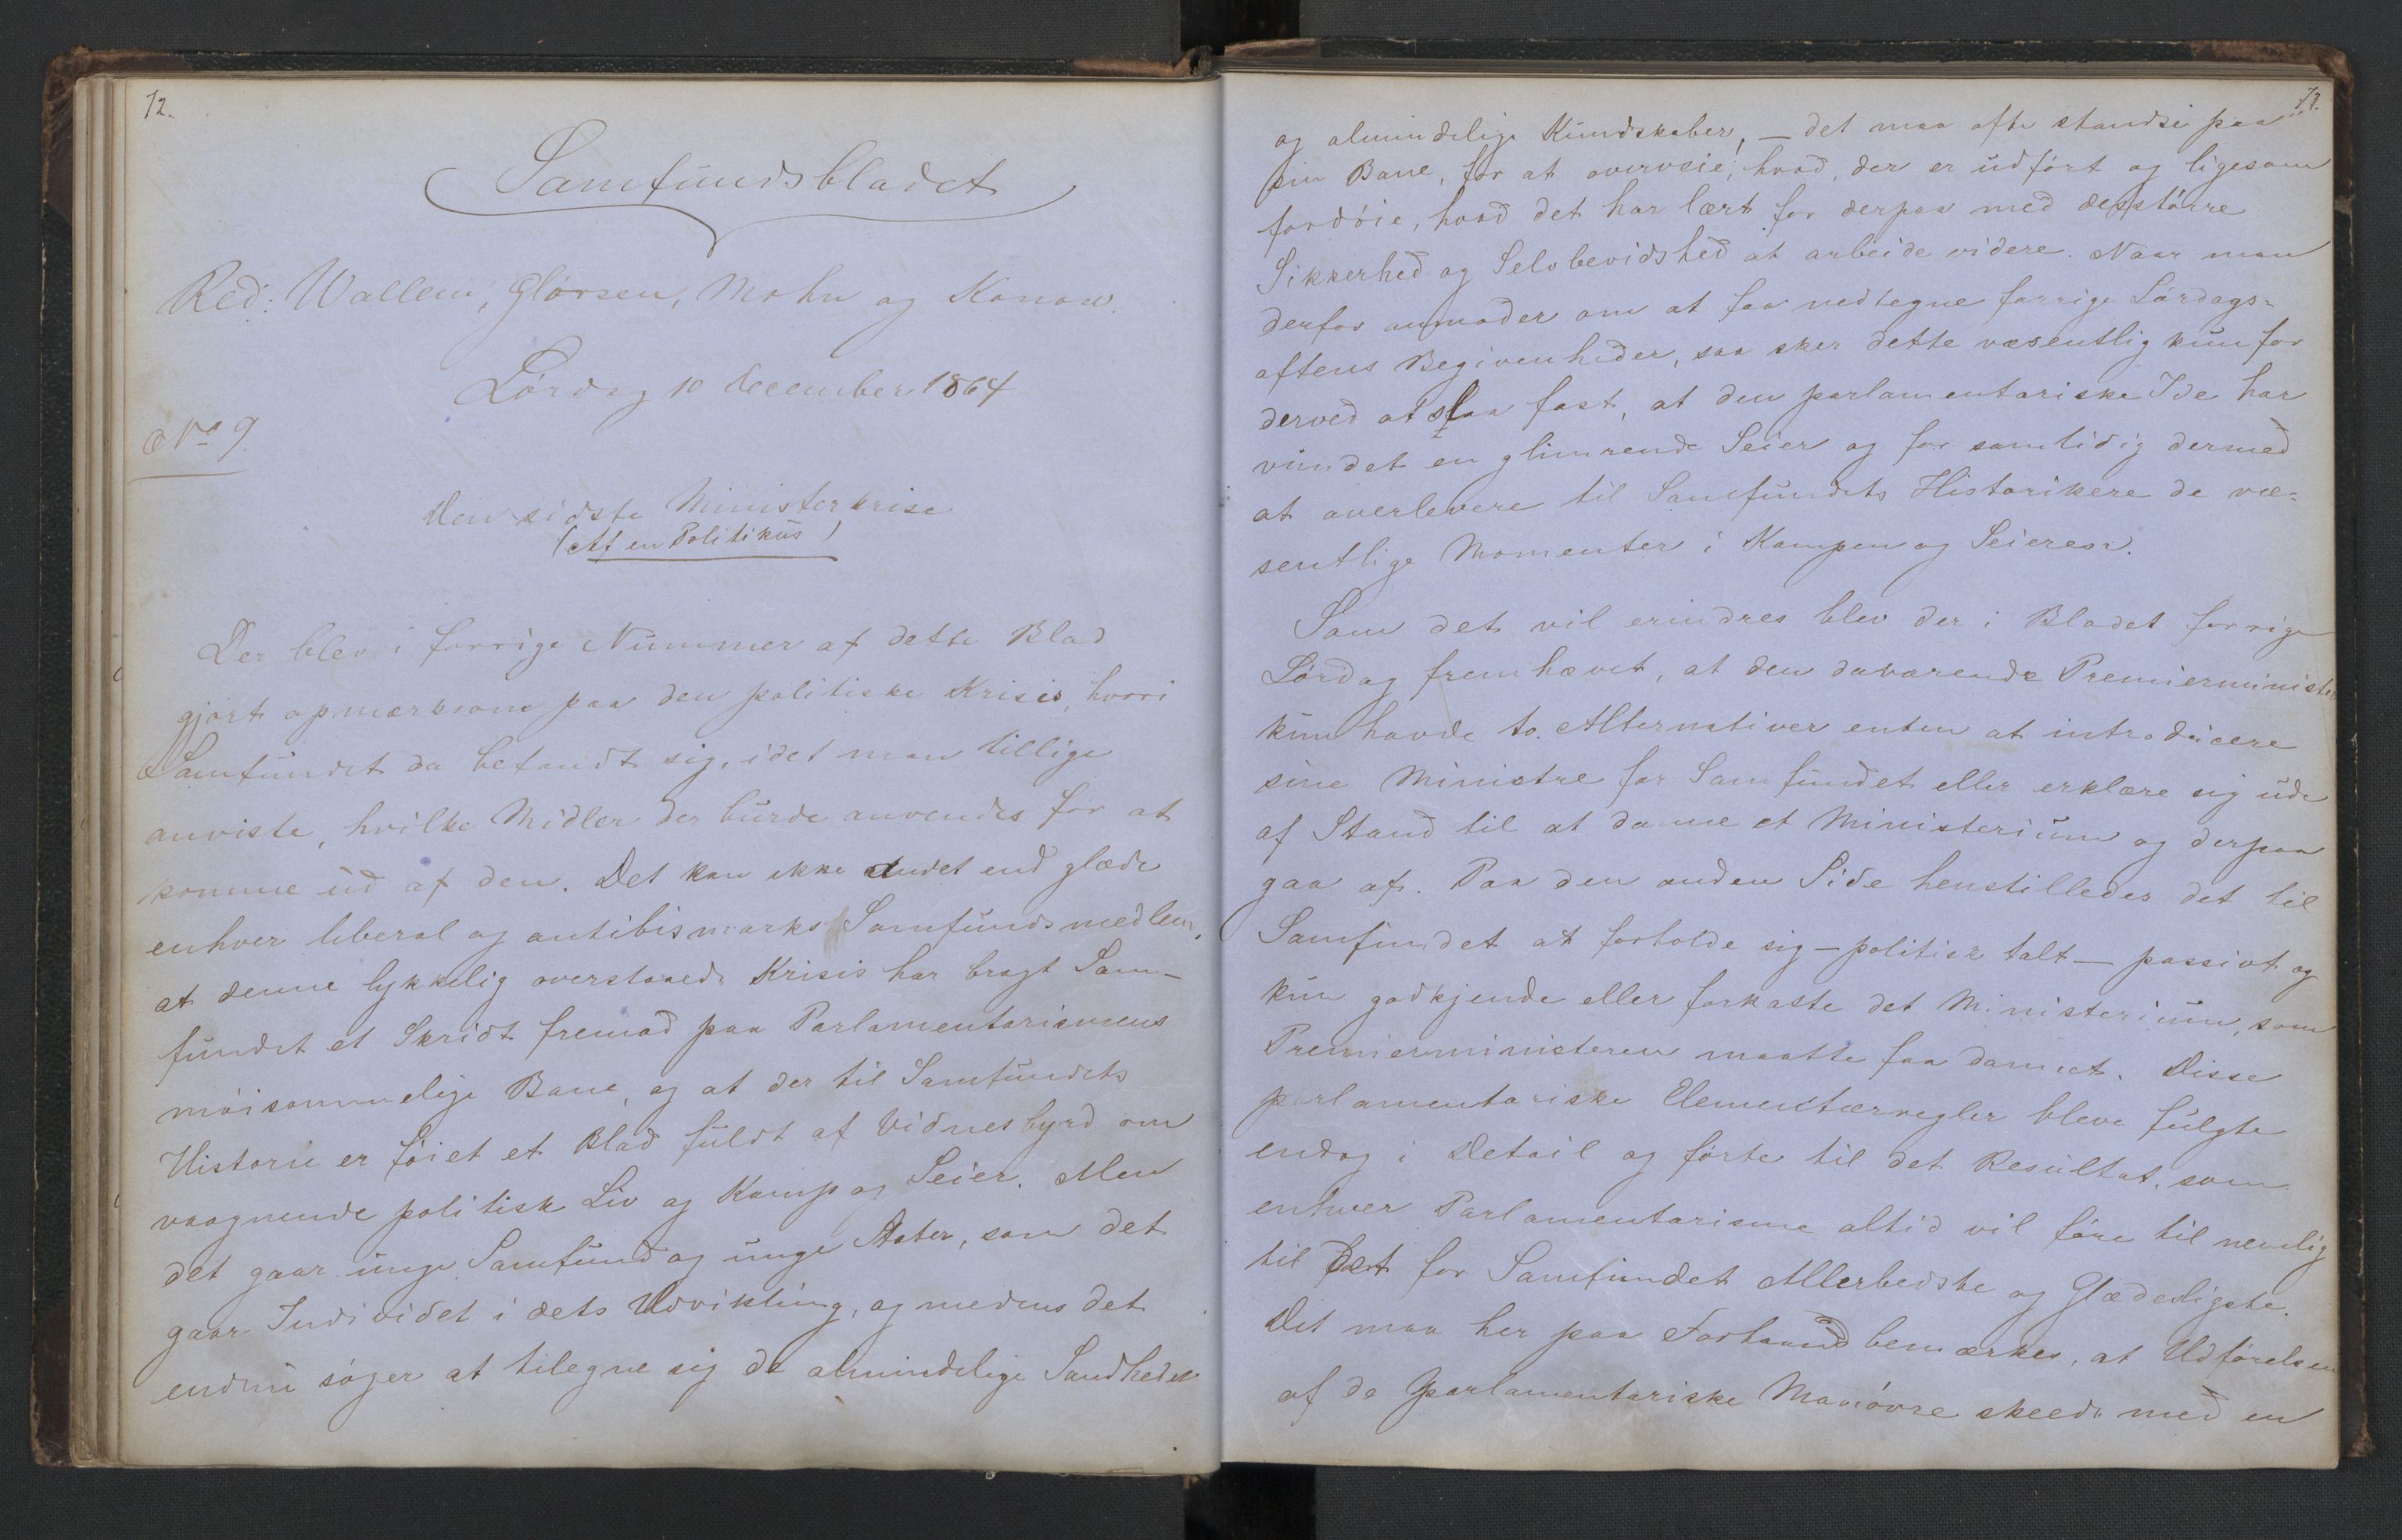 72.
Samfundsbladet
Red: Wallem, Glørsen, Mohn og Konow.
Lørdag 10 December 1864
No 9.
Den sidste Ministerkrise
(Af en Politikus)
Der blev i forrige Nummer af dette Blad
gjort opmærksom paa den politiske Krisis, hvori
Samfundet da befandt sig, idet man tillige
anviste, hvilke Midler der burde anvendes for at
komme ud af den. Det kan ikke andet end glæde
enhver liberal og antibismarksk Samfundsmedlem,
at denne lykkelig overstaaede Krisis har bragt Sam-
fundet et Skridt fremad paa Parlamentarismens
møisommelige Bane, og at der til Samfundets
Historie er føiet et Blad fuldt af Vidnesbyrd om
vaagnende politisk Liv og Kamp og Seier. Men
det gaar unge Samfund og unge Stater, som det
gaar Individet i dets Udvikling, og medens det
endnu søger at tilegne sig de almindelige Sandheder
73.
og almindelige Kundskaber, – det maa ofte standse paa
sin Bane, for at overveie, hvad der er udført og ligesom
fordøie, hvad det har lært for derpaa med desstørre
Sikkerhed og Selvbevidsthed at arbeide videre. Naar man
derfor anmoder om at faa nedtegne forrige Lørdags-
aftens Begivenheder, saa sker dette væsentlig kun for
derved at slaa fast, at den parlamentariske Ide har
vundet en glimrende Seier og for samtidig dermed
at overlevere til Samfundets Historikere de væ-
sentlige Momenter i Kampen og Seieren.
Som det vil erindres blev der i Bladet forrige
Lørdag fremhævet, at den daværende Premierminister
kun havde to Alternativer enten at introducere
sine Ministre for Samfundet eller erklære sig ude
af Stand til at danne et Ministerium og derpaa
gaa af. Paa den anden Side henstilledes det til
Samfundet at forholde sig – politisk talt – passivt og
kun godkjende eller forkaste det Ministerium, som
Premierministeren maatte faa dannet. Disse
parlamentariske Elementærregler bleve fulgte
endog i Detail og førte til det Resultat, som
enhver Parlamentarisme altid vil føre til nemlig
til Det for Samfundet Allerbedste og Glædeligste.
Det maa her paa Forhaand bemærkes, at Udførelsen
af de parlamentariske Manøvre skeede med en